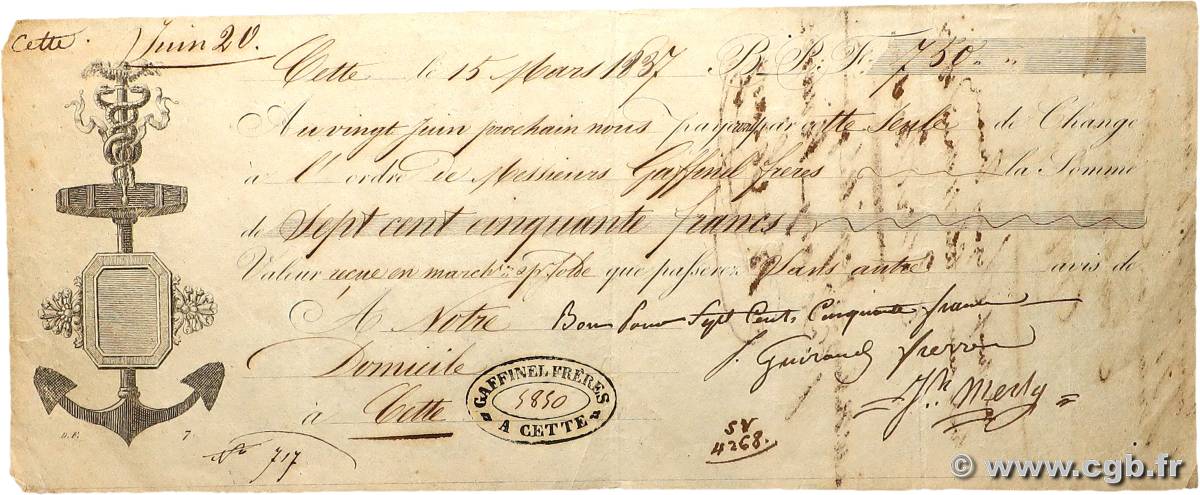 Cette. Juin 20.
Cette le 15 Mars 1837 B. P. F. 750
Au vingt Juin prochain nous payerons par cette Seule de Change
à l'ordre de Messieurs Gaffinel frères la Somme
de Sept cent cinquante francs
Valeur reçue en que passerez Sans autre avis de
A Notre Bon pour Sept Cents Cinquante francs
Domicile J. Guiraud
GAFFINEL FRÈRES
5850
A CETTE
à Cette Jh Merly
SV
4268.
D. F. 7.
No 717
© www.cgb.fr